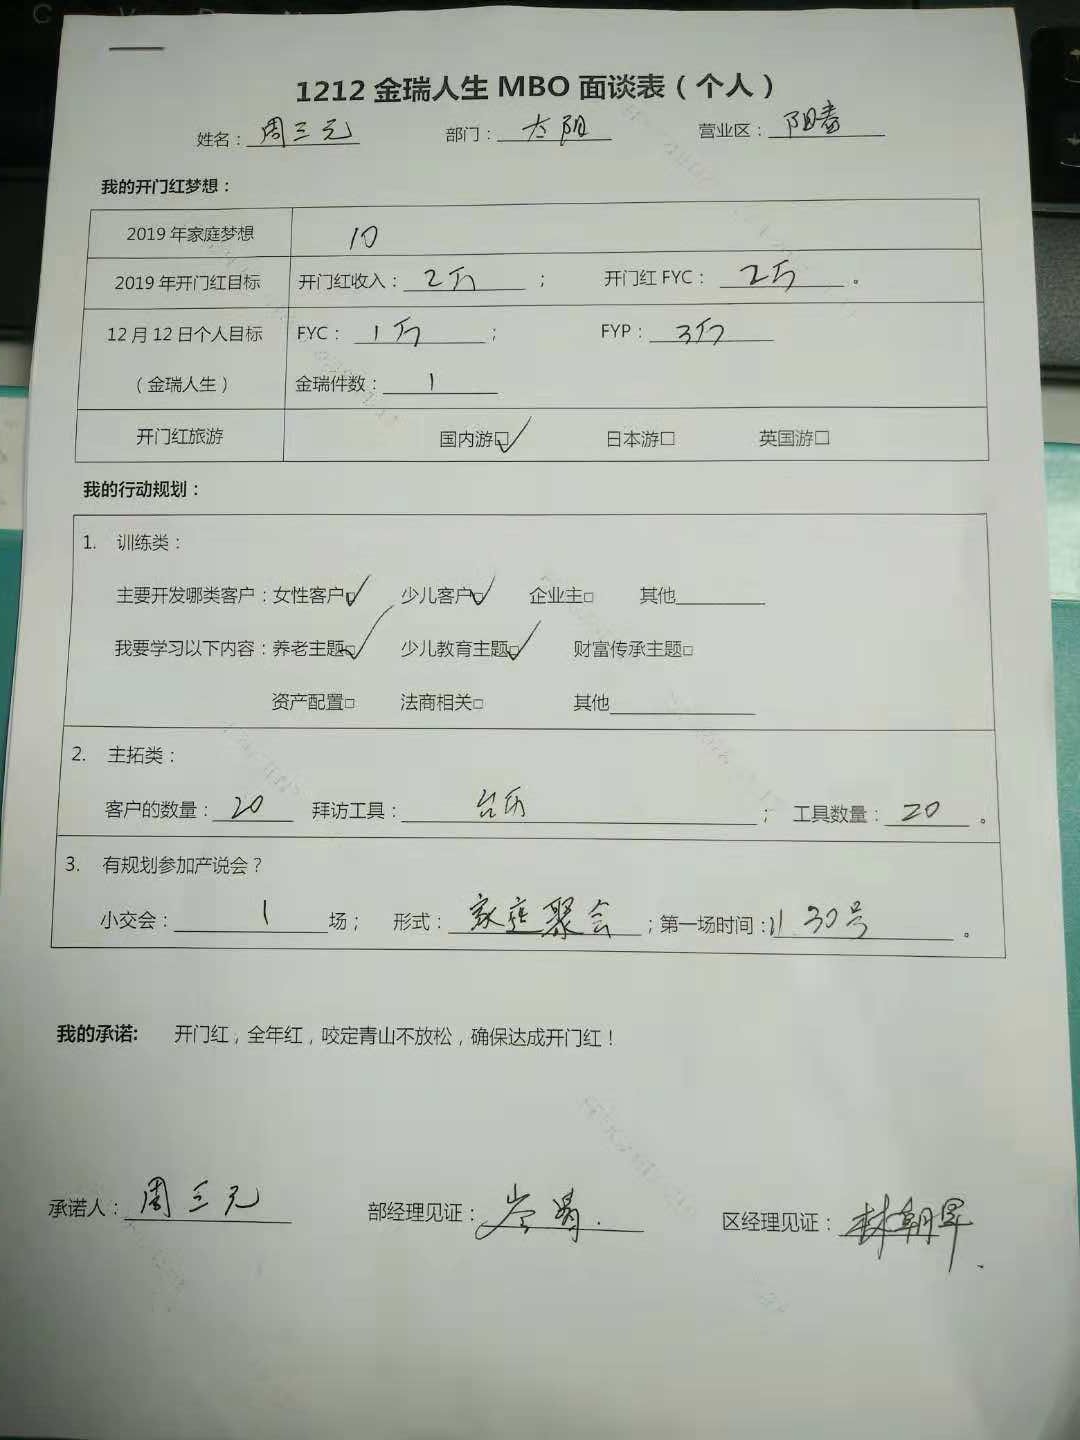 1212 金瑞人生 MBO 面谈表（个人）
姓名：周三元 部门：太阳 营业区：阳春
我的开门红梦想：
2019 年家庭梦想 10
2019 年开门红目标 开门红收入：2万； 开门红 FYC：2万。
12 月 12 日个人目标 FYC：1万； FYP：3万
（金瑞人生） 金瑞件数：1
开门红旅游 国内游□✓ 日本游□ 英国游□
我的行动规划：
1. 训练类：
主要开发哪类客户：女性客户□✓ 少儿客户□✓ 企业主□ 其他
我要学习以下内容：养老主题□✓ 少儿教育主题□✓ 财富传承主题□
资产配置□ 法商相关□ 其他
2. 主拓类：
客户的数量：20 拜访工具：台历； 工具数量：20。
3. 有规划参加产说会？
小交会：1场； 形式：家庭聚会；第一场时间：11.30号。
我的承诺: 开门红，全年红，咬定青山不放松，确保达成开门红！
承诺人：周三元 部经理见证： 区经理见证：